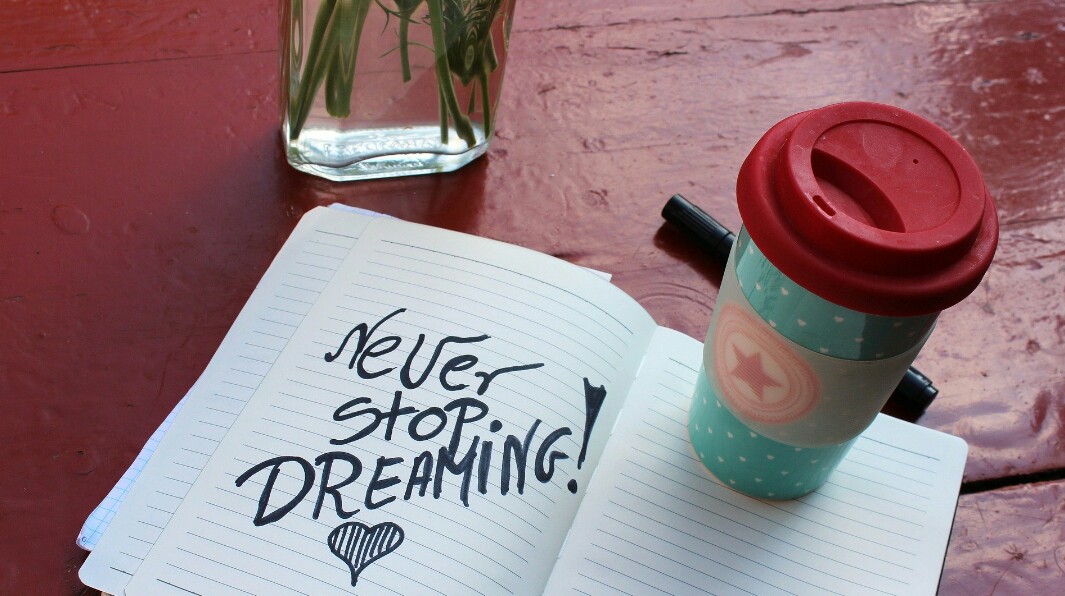 Never
stop.
DREAMING!